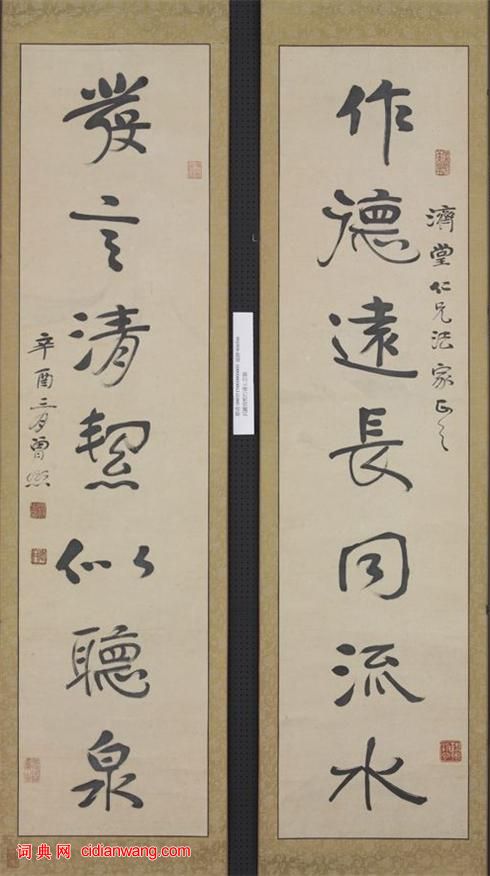 濟堂仁兄法家正之
作德遠長同流水
發言清絜似聽泉
辛酉三月曾熙
词典网 cidianwang.com